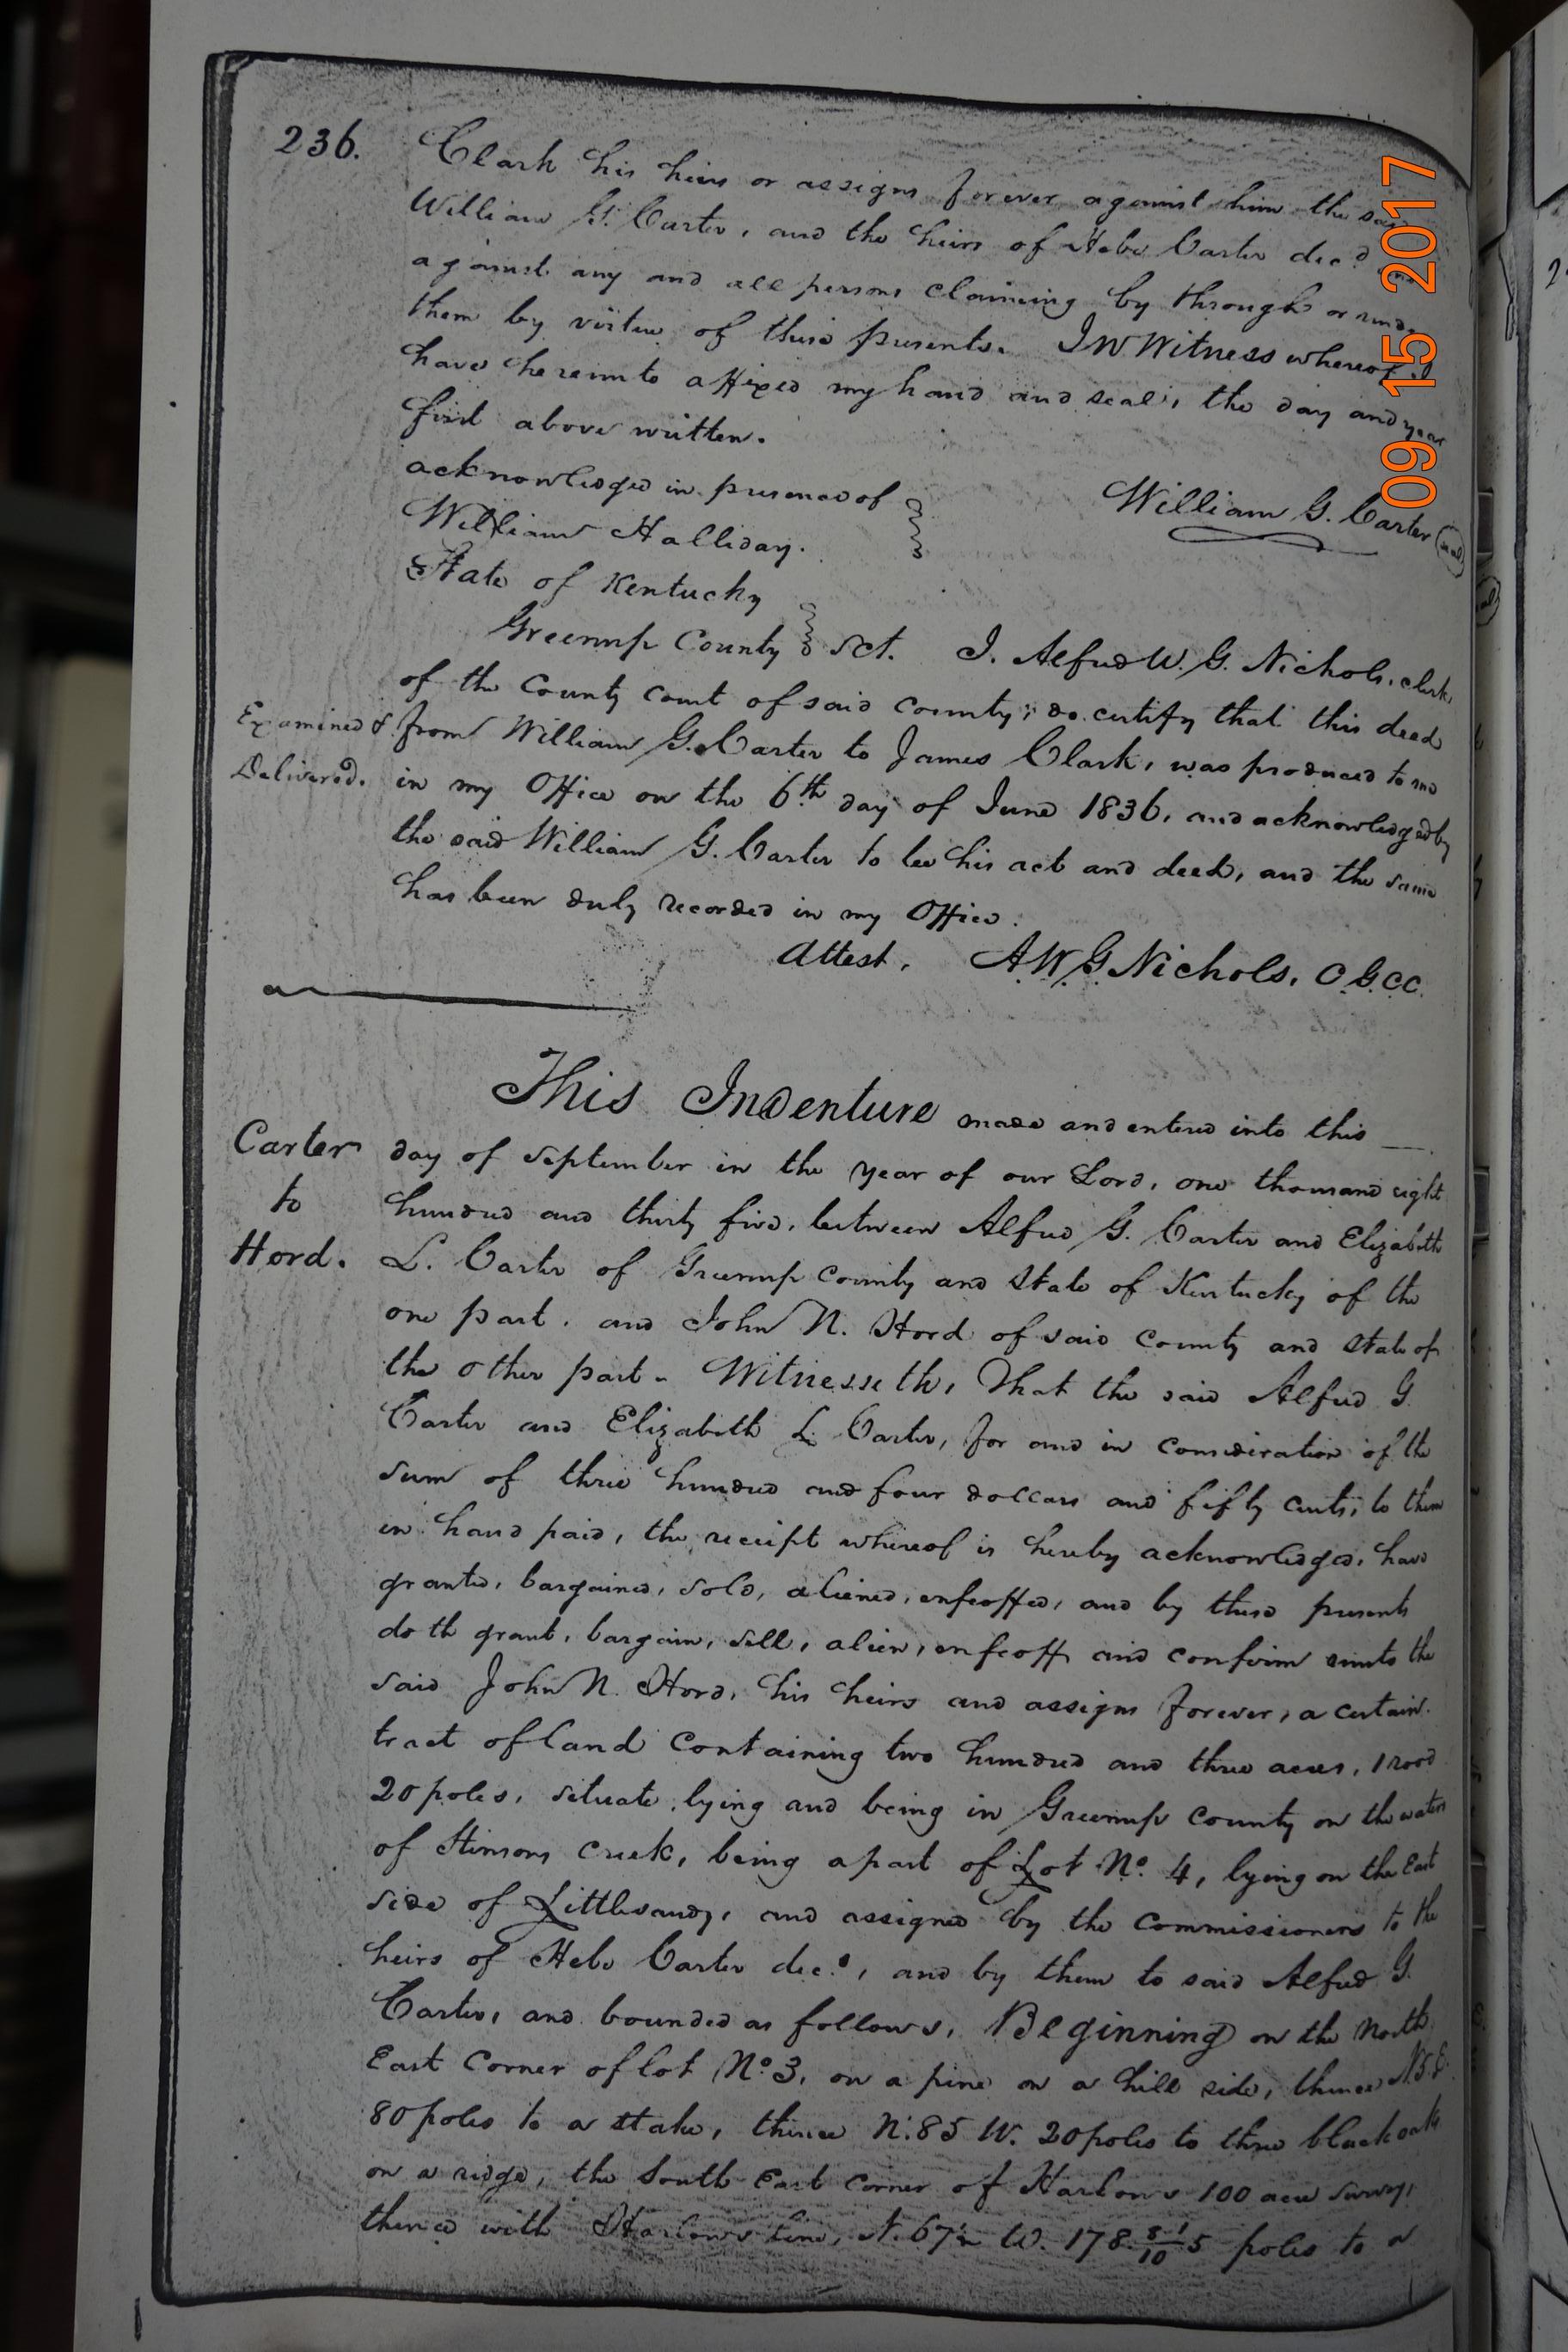 236.
Clark his heirs or assigns forever against him the said
William G. Carter, and the heirs of Hebe Carter decd
against any and all persons claiming by through or under
them by virtue of these presents. In Witness whereof I
have hereunto affixed my hand and seal, the day and year
first above written.
acknowledged in presence of
William G. Carter (seal)
William Halliday.
State of Kentucky
Greenup County Sct. I. Alfred W. G. Nichols, clerk
of the County court of said county, do certify that this deed
Examined &
Delivered.
from William G. Carter to James Clark, was produced to me
in my Office on the 6th day of June 1836, and acknowledged by
the said William G. Carter to be his act and deed, and the same
has been duly recorded in my Office.
Attest, A.W.G. Nichols, C.G.C.C.
This Indenture made and entered into this __
Carter
to
Hord.
day of September in the year of our Lord, one thousand eight
hundred and thirty five, between Alfred G. Carter and Elizabeth
L. Carter of Greenup County and State of Kentucky of the
one part. and John N. Hord of said County and State of
the other part. Witnesseth, That the said Alfred G
Carter and Elizabeth L. Carter, for and in consideration of the
sum of three hundred and four dollars and fifty cents, to them
in hand paid, the receipt whereof is hereby acknowledged, have
granted, bargained, sold, aliened, enfeoffed, and by these presents
doth grant, bargain, sell, alien, enfeoff and confirm unto the
said John N. Hord, his heirs and assigns forever, a certain
tract of land containing two hundred and three acres, 1 rood
20 poles, situate, lying and being in Greenup County on the waters
of Stinsons Creek, being a part of Lot No. 4, lying on the East
side of Littlesandy, and assigned by the Commissioners to the
heirs of Hebe Carter decd, and by them to said Alfred G.
Carter, and bounded as follows, Beginning on the North
East Corner of lot No. 3, on a pine on a hill side, thence N.5.E.
80 poles to a stake, thence N.85 W. 20 poles to three black oaks
on a ridge, the South East corner of Harlows 100 acre survey,
thence with Harlows line, N. 67½ W. 178 poles to a
09 15 2017